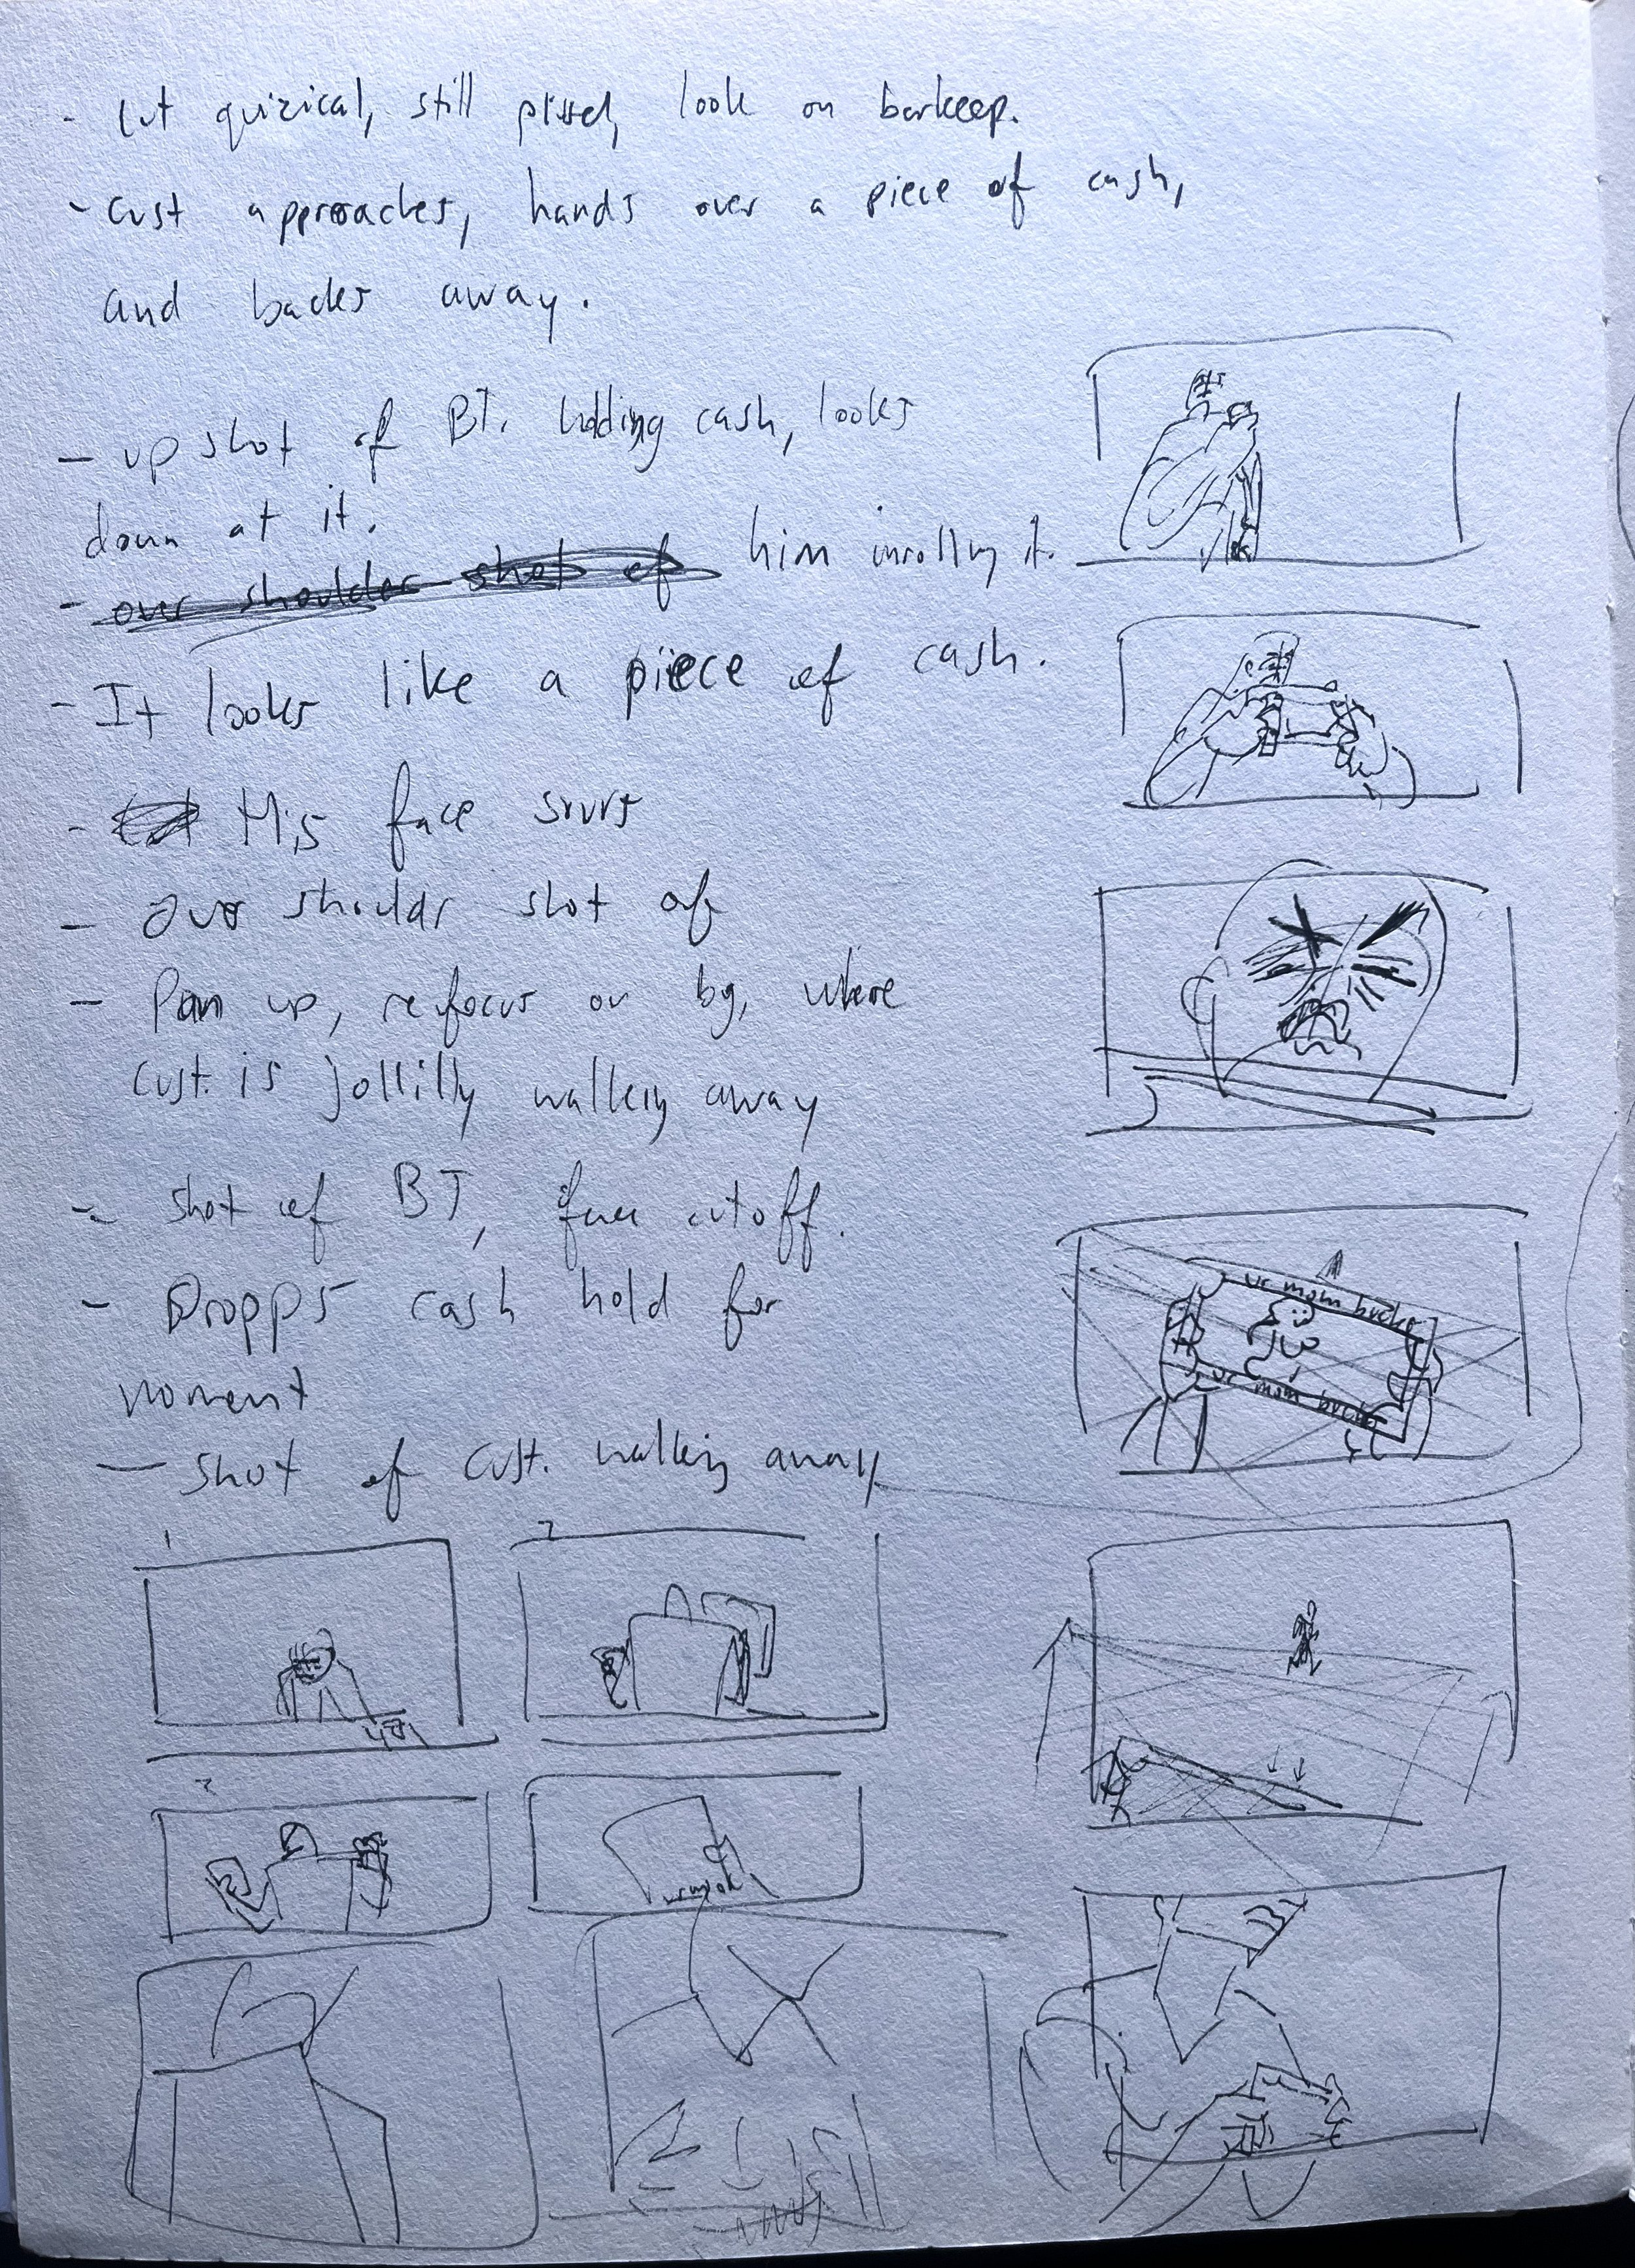 - Cut quizical, still pissed, look on barkeep.
- Cust approaches, hands over a piece of cash,
and backs away.
- up shot of BT. holding cash, looks
down at it.
- over shoulder shot of him unrolling it.
- It looks like a piece of cash.
- His face sours
- Over shouldr shot of
- Pan up, refocus on bg, where
cust. is jollilly walking away
- Shot of BT, face cutoff.
- Dropps cash hold for
moment
- Shot of cust. walking away
ur mom bucks
ur mom bucks
1
2